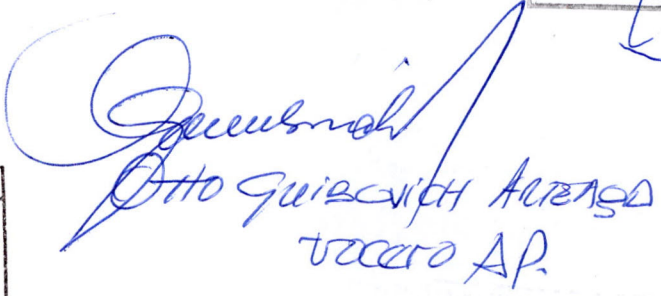 OTTO GUIBOVICH ARTEAGA
VOCERO AP.